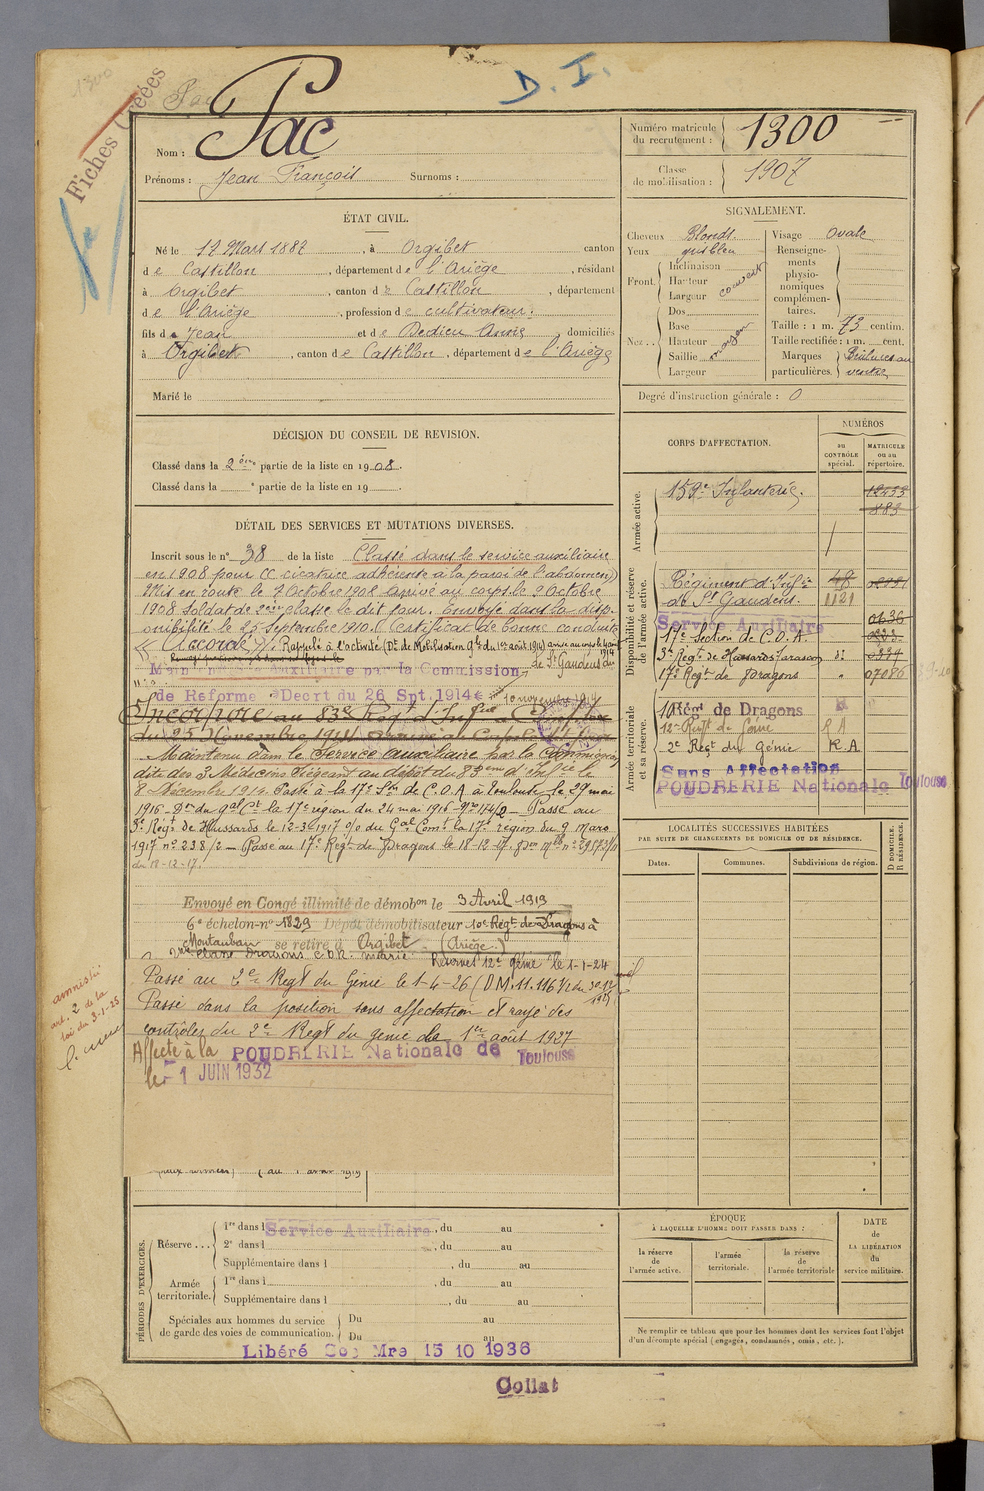 1300
Fiches Créées
D. I.
Nom : Pac
Prénoms : Jean François Surnoms :
Numéro matricule du recrutement : 1300
Classe de mobilisation : 1907
ÉTAT CIVIL.
Né le 12 Mars 1887, à Orgibet canton
de Castillon, département de l'Ariège, résidant
à Orgibet, canton de Castillon, département
de l'Ariège, profession de cultivateur.
fils de Jean et de Dedieu Anne, domiciliés
à Orgibet, canton de Castillon, département de l'Ariège
Marié le
SIGNALEMENT.
Cheveux Blonds. Visage Ovale
Yeux gris bleu
Front. Inclinaison Hauteur Largeur couvert
Nez.. Dos Base Hauteur Saillie Largeur moyen
Renseignements physionomiques complémentaires.
Taille : 1 m. 73 centim.
Taille rectifiée : 1 m. cent.
Marques particulières. Brûlures au ventre
Degré d'instruction générale : 0
DÉCISION DU CONSEIL DE REVISION.
Classé dans la 2ème partie de la liste en 1908.
Classé dans la e partie de la liste en 19
DÉTAIL DES SERVICES ET MUTATIONS DIVERSES.
Inscrit sous le n° 38 de la liste Classé dans le service auxiliaire
en 1908 pour cicatrice adhérente à la paroi de l'abdomen)
Mis en route le 7 Octobre 1908 arrivé au corps le 9 Octobre
1908 soldat de 2ème classe le dit jour. Envoyé dans la disp-
onibilité le 25 Septembre 1910. Certificat de bonne conduite
"Accordé". Rappelé à l'activité (Dt. de Mobilisation Gle du 1er août 1914) arrivé au corps le
de St Gaudens
Auxiliaire par la Commission
de Reforme Decrt du 26 Spt. 1914
Incorporé au 83e Régt d'Infie
du 25 Novembre 1914
Maintenu dans le Service auxiliaire par la Commission
dite des 3 Médecins siégeant au dépôt du 83eme d'Infie le
8 Décembre 1914. Passé à la 17e Son de C.O.A à Toulouse le 29 mai
1916 - Dn du Gal Ct la 17e région du 24 mai 1916 - No 174/2 - Passé au
3e Régt de Hussards le 12-3-1917 o/o du Gal Comt la 17e région du 9 Mars
1917 n° 238/2 - Passé au 17e Régt de Dragons le 18-12-17.
du 18-12-17.
Envoyé en Congé illimité de démobon le 3 Avril 1919
6e échelon - n° 1829 Dépôt démobilisateur 10e Régt de Dragons à
Montauban se retire à Orgibet (Ariège)
Réserves 12e Génie le 1-1-24
Passé au 2e Regt du Génie le 1-4-26 (DM. 11.116
Passé dans la position sans affectation et rayé des
contrôles du 2e Regt du génie le 1er août 1927
Affecté à la POUDRERIE Nationale de Toulouse
le 1 JUIN 1932
amnistié
art. 2 de la
loi du 3-1-25
CORPS D'AFFECTATION.
NUMÉROS
au CONTRÔLE spécial.
MATRICULE ou au répertoire.
Armée active.
159e Infanterie.
12433
883
Disponibilité et réserve de l'armée active.
Régiment d'Infie
de St Gaudens.
Service Auxiliaire
17e Section de C.O.A.
3e Régt de Hussards Tarascon
17e Régt de Dragons 07086
Armée territoriale et sa réserve.
10e Régt de Dragons
12e Regt de Génie
2e Regt du Génie R.A
Sans Affectation
POUDRERIE Nationale Toulouse
LOCALITÉS SUCCESSIVES HABITÉES
PAR SUITE DE CHANGEMENTS DE DOMICILE OU DE RÉSIDENCE.
Dates. Communes. Subdivisions de région.
D DOMICILE. R RÉSIDENCE.
PÉRIODES D'EXERCICES.
Réserve ... 1re dans l Service Auxiliaire, du au
2e dans l , du au
Supplémentaire dans l , du au
Armée territoriale. 1re dans l , du au
Supplémentaire dans l , du au
Spéciales aux hommes du service de garde des voies de communication. Du au
Du au
Libéré Mre 15 10 1936
ÉPOQUE
À LAQUELLE L'HOMME DOIT PASSER DANS :
la réserve de l'armée active.
l'armée territoriale.
la réserve de l'armée territoriale
DATE de LA LIBÉRATION du service militaire.
Ne remplir ce tableau que pour les hommes dont les services font l'objet
d'un décompte spécial (engagés, condamnés, omis, etc.).
Collat